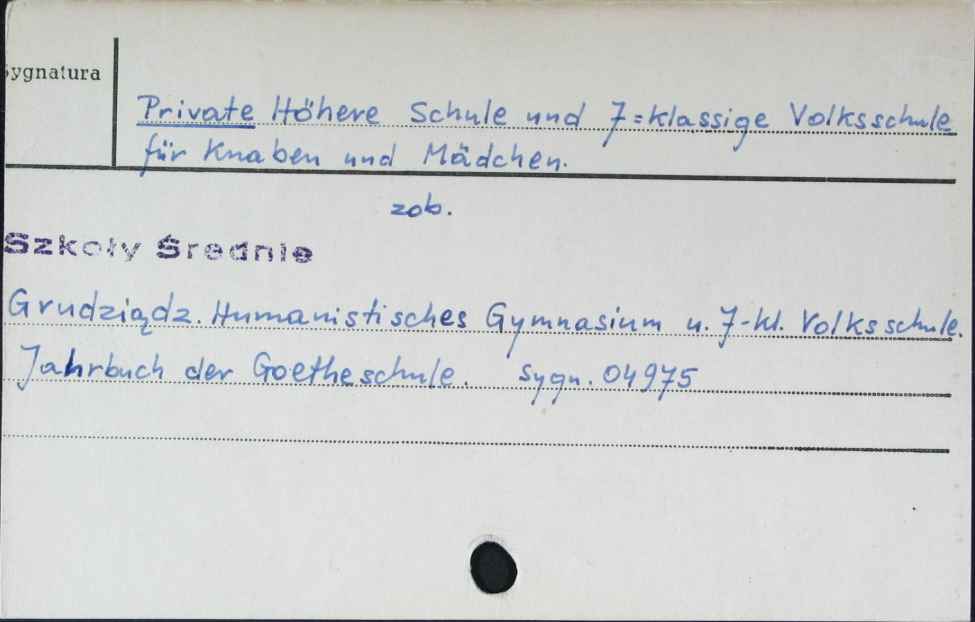 Sygnatura
Private Höhere Schule und 7=klassige Volksschule
für Knaben und Mädchen.
zob.
Szkoły Średnie
Grudziądz. Humanistisches Gymnasium u. 7-kl. Volksschule.
Jahrbuch der Goetheschule. Sygn. 04975